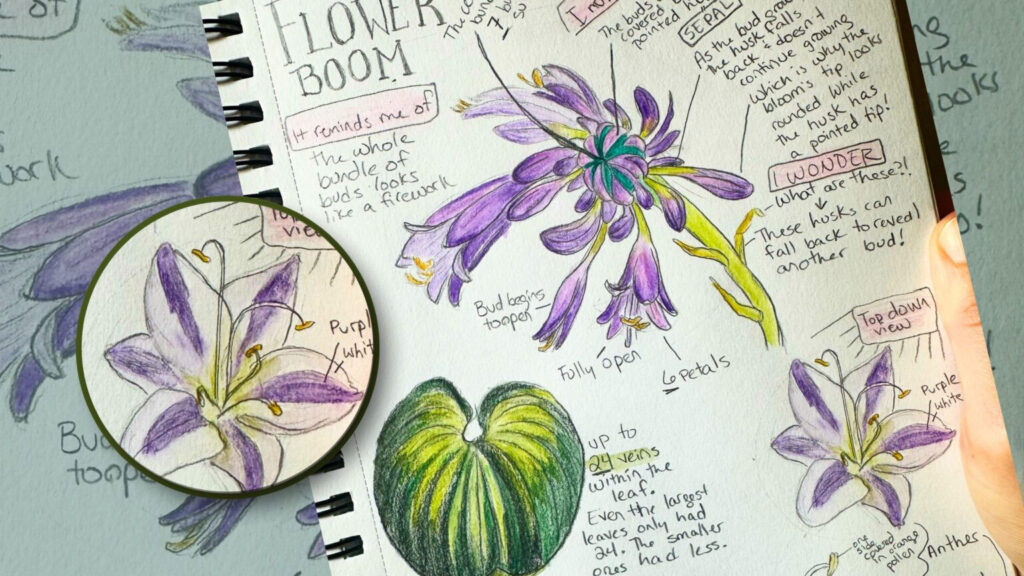 FLOWER
BOOM
It reminds me of
the whole
bundle of
buds looks
like a firework
The buds
covered
pointed
SEPAL
As the bud grows
the husk falls
back & doesn't
continue growing
which is why the
bloom's tip looks
rounded while
the husk has
a pointed tip!
I WONDER
What are these?!
These husks can
fall back to reveal
another bud!
Bud begins
to open
Fully open
6 Petals
Top down
view
Purple
White
up to
24 veins
within the
leaf.
Even the largest
leaves only had
24. The smaller
ones had less.
one
side
covered
in orange
pollen
Anther
Top
view
Purpl
Whit
of
work
Bud
to ope
the
looks